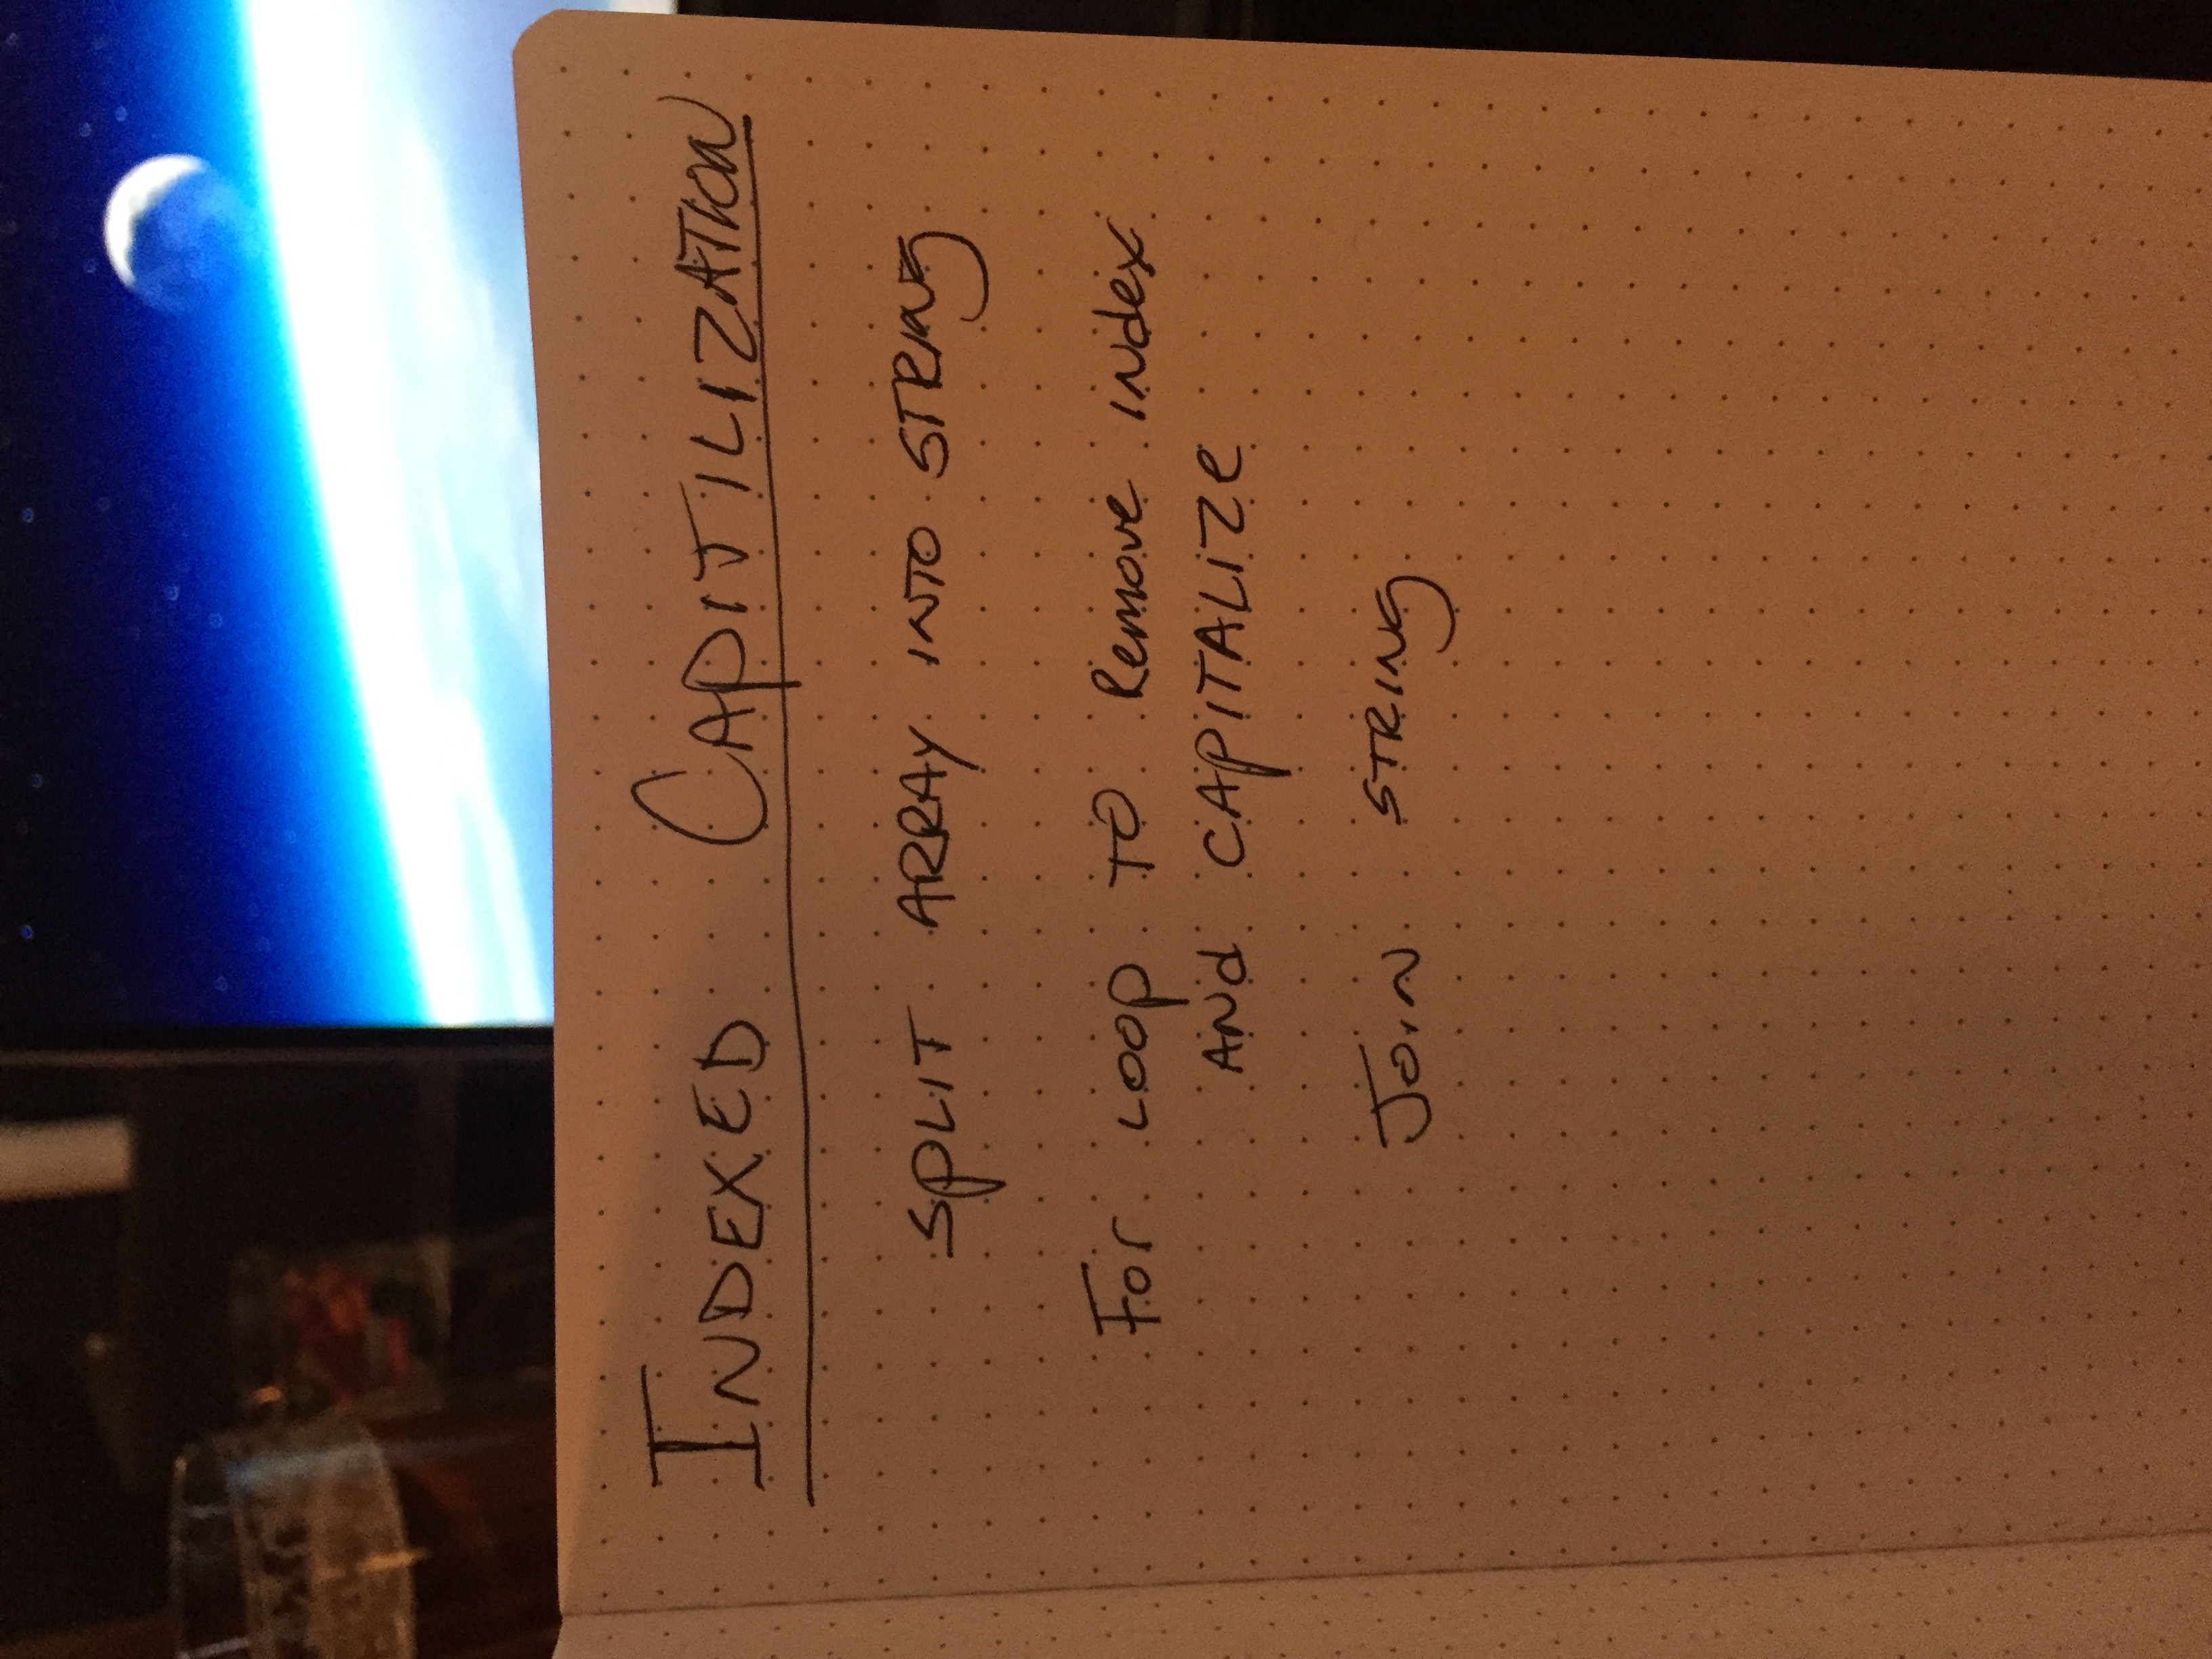 Indexed Capitilization
Split array into string
For loop to Remove index
and capitalize
Join string